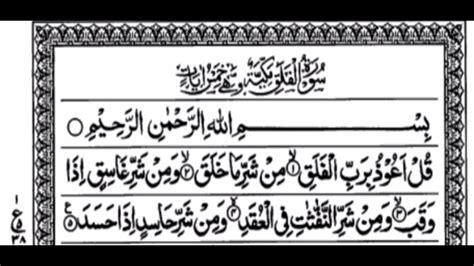 سُوۡرَةُ الۡفَلَقِ مَكِّيَّةٌ وَّهِيَ خَمۡسُ اٰيَاتٍ
بِسۡمِ اللهِ الرَّحۡمٰنِ الرَّحِيۡمِ ○
قُلۡ اَعُوۡذُ بِرَبِّ الۡفَلَقِ ۙ‏﴿۱﴾ مِنۡ شَرِّ مَا خَلَقَ ۙ‏﴿۲﴾ وَمِنۡ شَرِّ غَاسِقٍ اِذَا
وَقَبَ ۙ‏﴿۳﴾ وَمِنۡ شَرِّ النَّفّٰثٰتِ فِى الۡعُقَدِ ۙ‏﴿۴﴾ وَمِنۡ شَرِّ حَاسِدٍ اِذَا حَسَدَ ﴿۵﴾
۱
ع
۵
۳۸